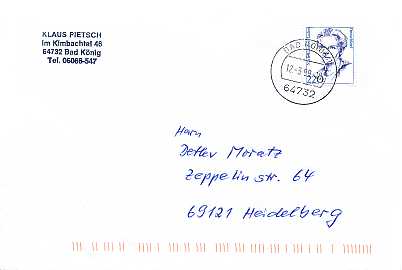 KLAUS PIETSCH
Im Kimbachtal 48
64732 Bad König
Tel. 06066-547
BAD KÖNIG
64732
Herrn
Detlev Moratz
Zeppelinstr. 64
69121 Heidelberg